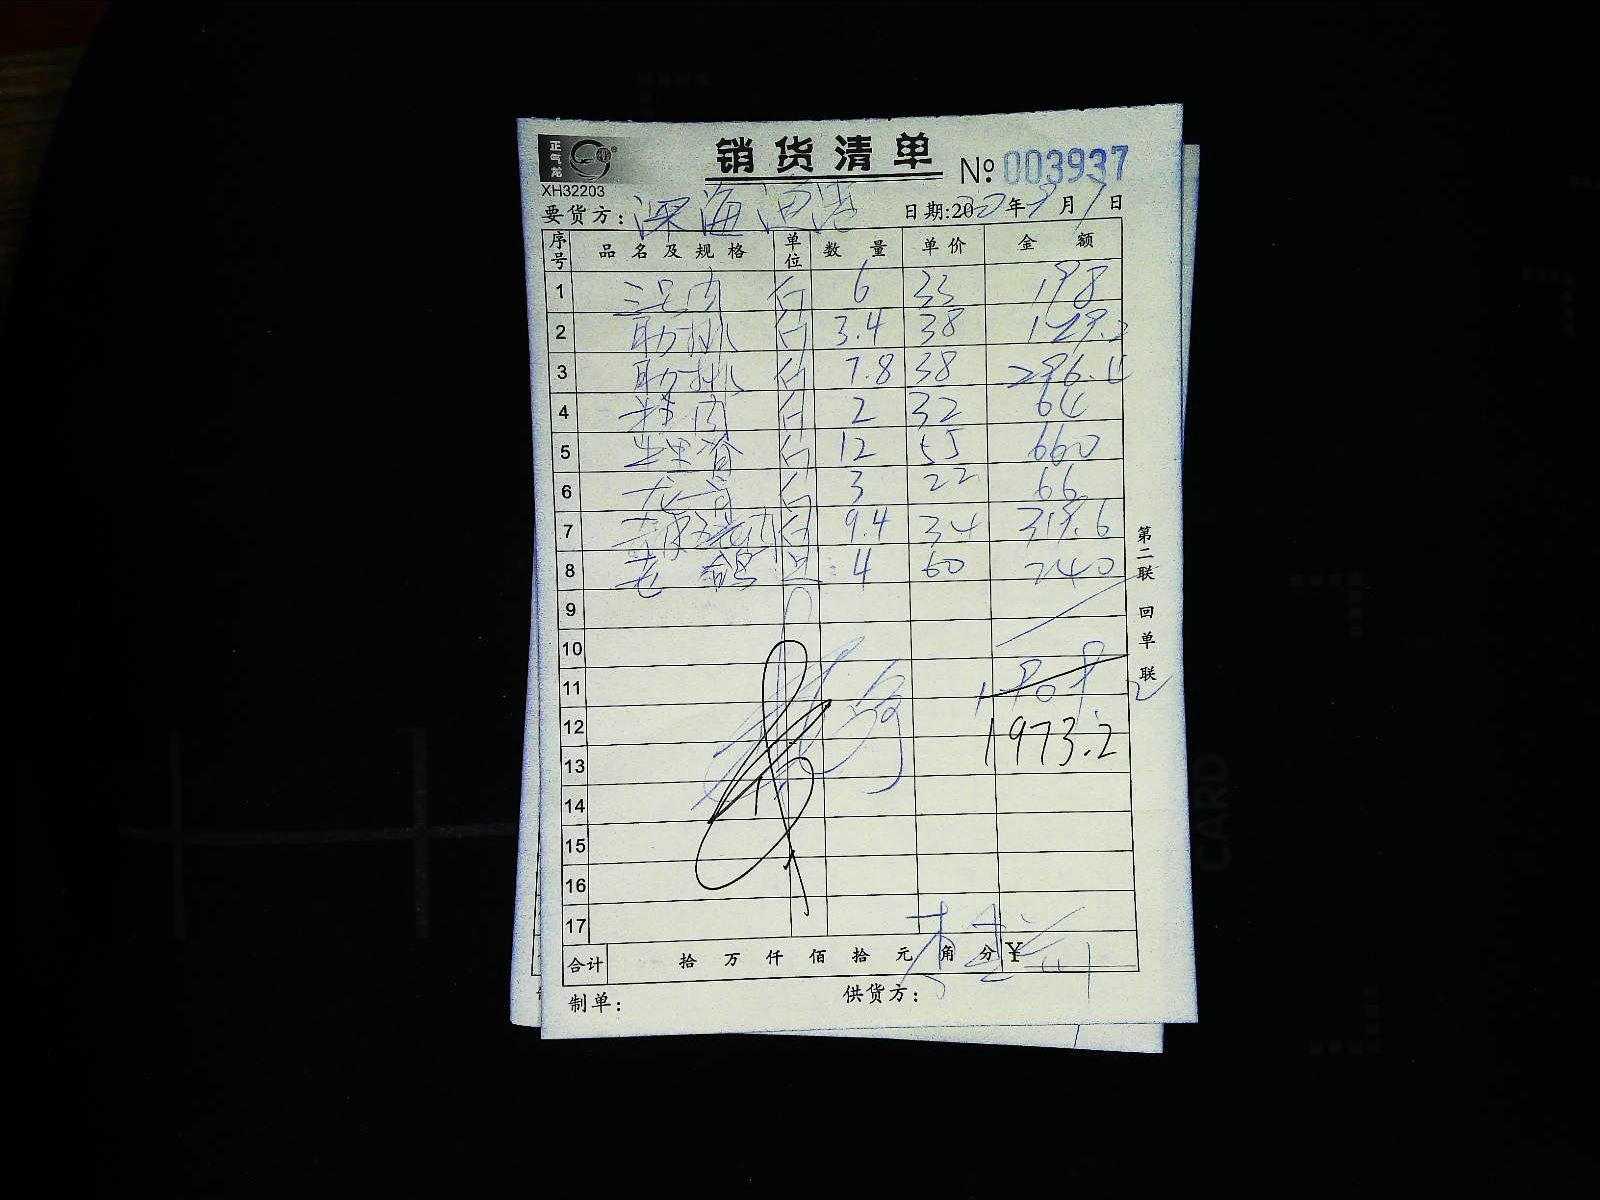 正气龙
销货清单 No: 003937
XH32203
要货方: 深海渔港 日期:2020年9月1日
序号 品名及规格 单位 数量 单价 金额
1 三号肉 斤 6 33 198
2 肋排 斤 3.4 38 129.2
3 肋排 斤 7.8 38 296.4
4 肉 斤 2 32 64
5 斤 12 55 660
6 龙骨 斤 3 22 66
7 斤 9.4 34 319.6
8 老鸽 只 4 60 240
9
10
11
12 1973.2
13
14
15
16
17
合计 拾 万 仟 佰 拾 元 角 分 ¥
制单: 供货方:
第二联 回单联
CARD